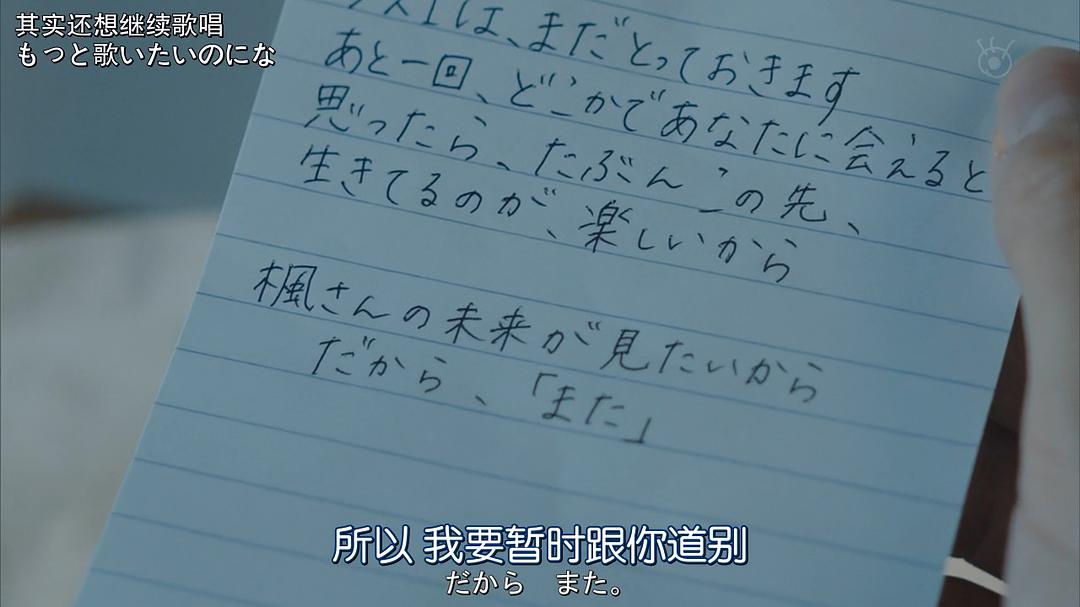 其实还想继续歌唱
もっと歌いたいのにな
は、まだとっておきます
あと一回、どこかであなたに会えると
思ったら、たぶんこの先、
生きてるのが、楽しいから
楓さんの未来が見たいから
だから、「また」
所以 我要暂时跟你道别
だから また。